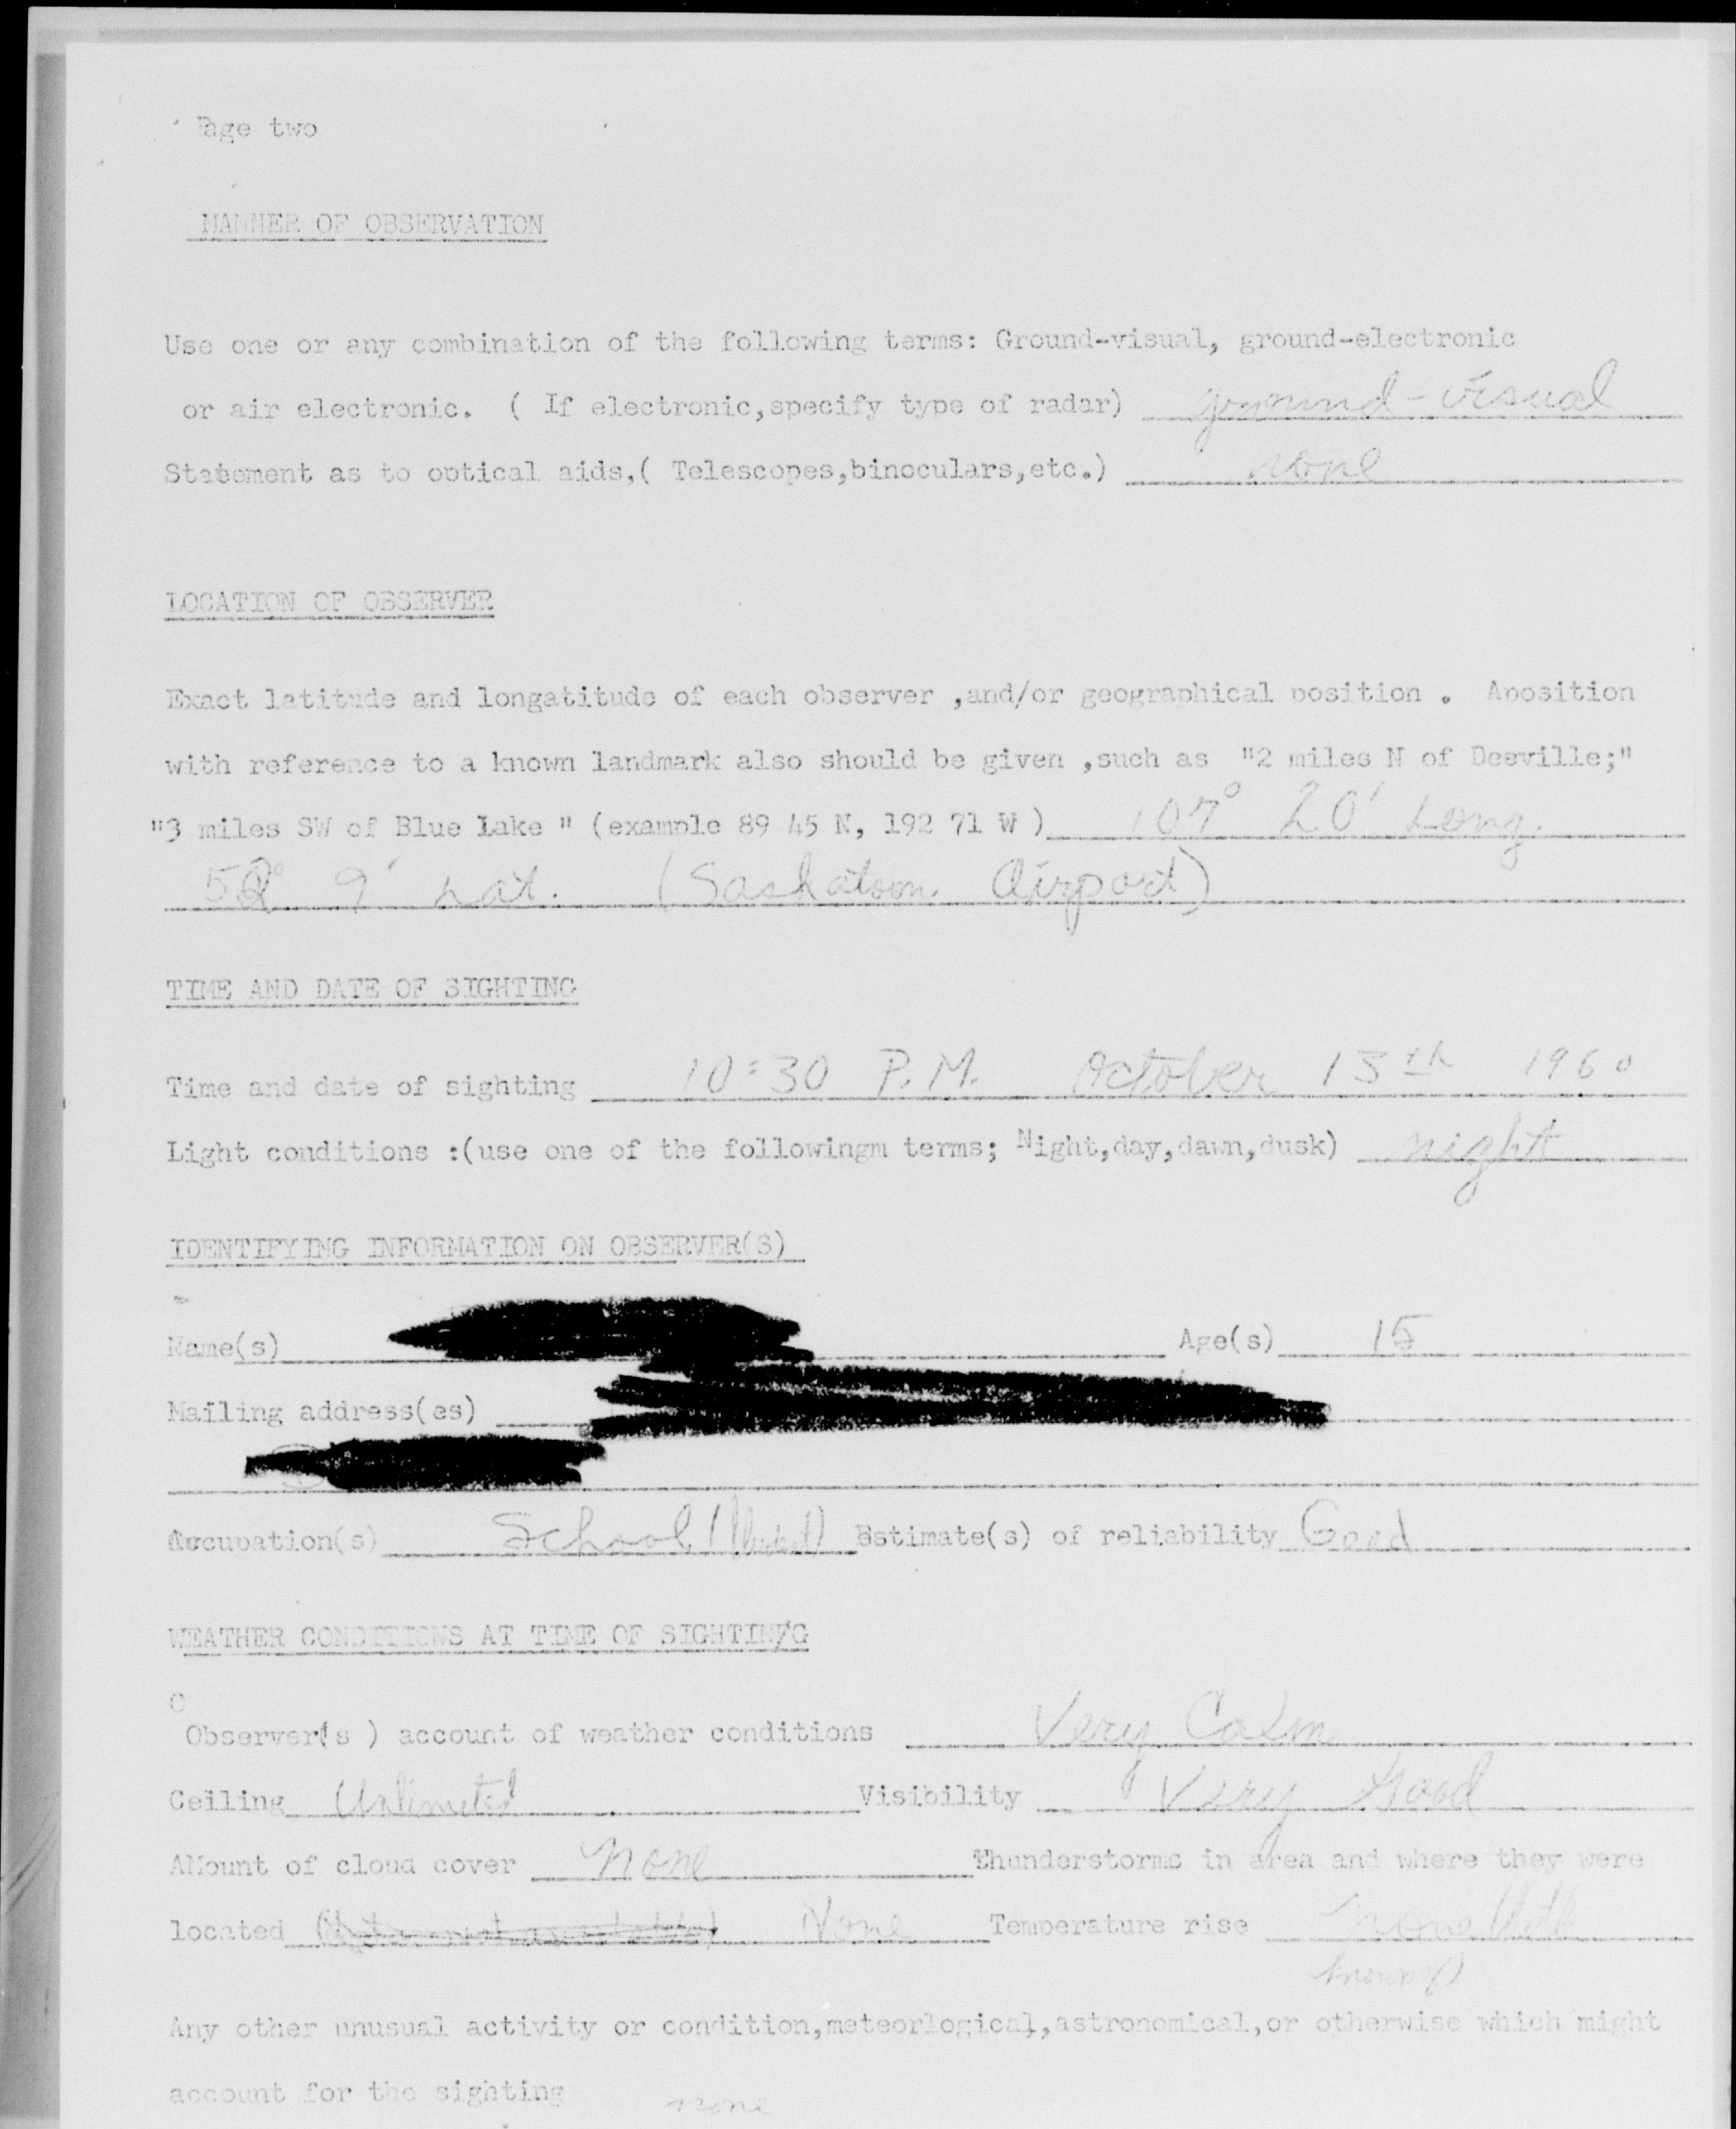 Page two
MANNER OF OBSERVATION
Use one or any combination of the following terms: Ground-visual, ground-electronic
or air electronic. ( If electronic,specify type of radar) ground-visual
Statement as to optical aids,( Telescopes,binoculars,etc.) none
LOCATION OF OBSERVER
Exact latitude and longatitude of each observer ,and/or geographical position . Aposition
with reference to a known landmark also should be given ,such as "2 miles N of Deeville;"
"3 miles SW of Blue Lake " (example 89 45 N, 192 71 W ) 107° 20' Long.
52° 9' Lat. (Saskatoon Airport)
TIME AND DATE OF SIGHTING
Time and date of sighting 10:30 P.M. October 13th 1960
Light conditions :(use one of the followingm terms; Night,day,dawn,dusk) night
IDENTIFYING INFORMATION ON OBSERVER(S)
Name(s) Age(s) 15
Mailing address(es)
Occupation(s) School (Student) Estimate(s) of reliability Good
WEATHER CONDITIONS AT TIME OF SIGHTIN/G
O
Observer(s ) account of weather conditions Very Calm
Ceiling Unlimited Visibility Very Good
AMount of cloud cover none Thunderstorms in area and where they were
located None Temperature rise none
known)
Any other unusual activity or condition,meteorlogical,astronomical,or otherwise which might
account for the sighting none